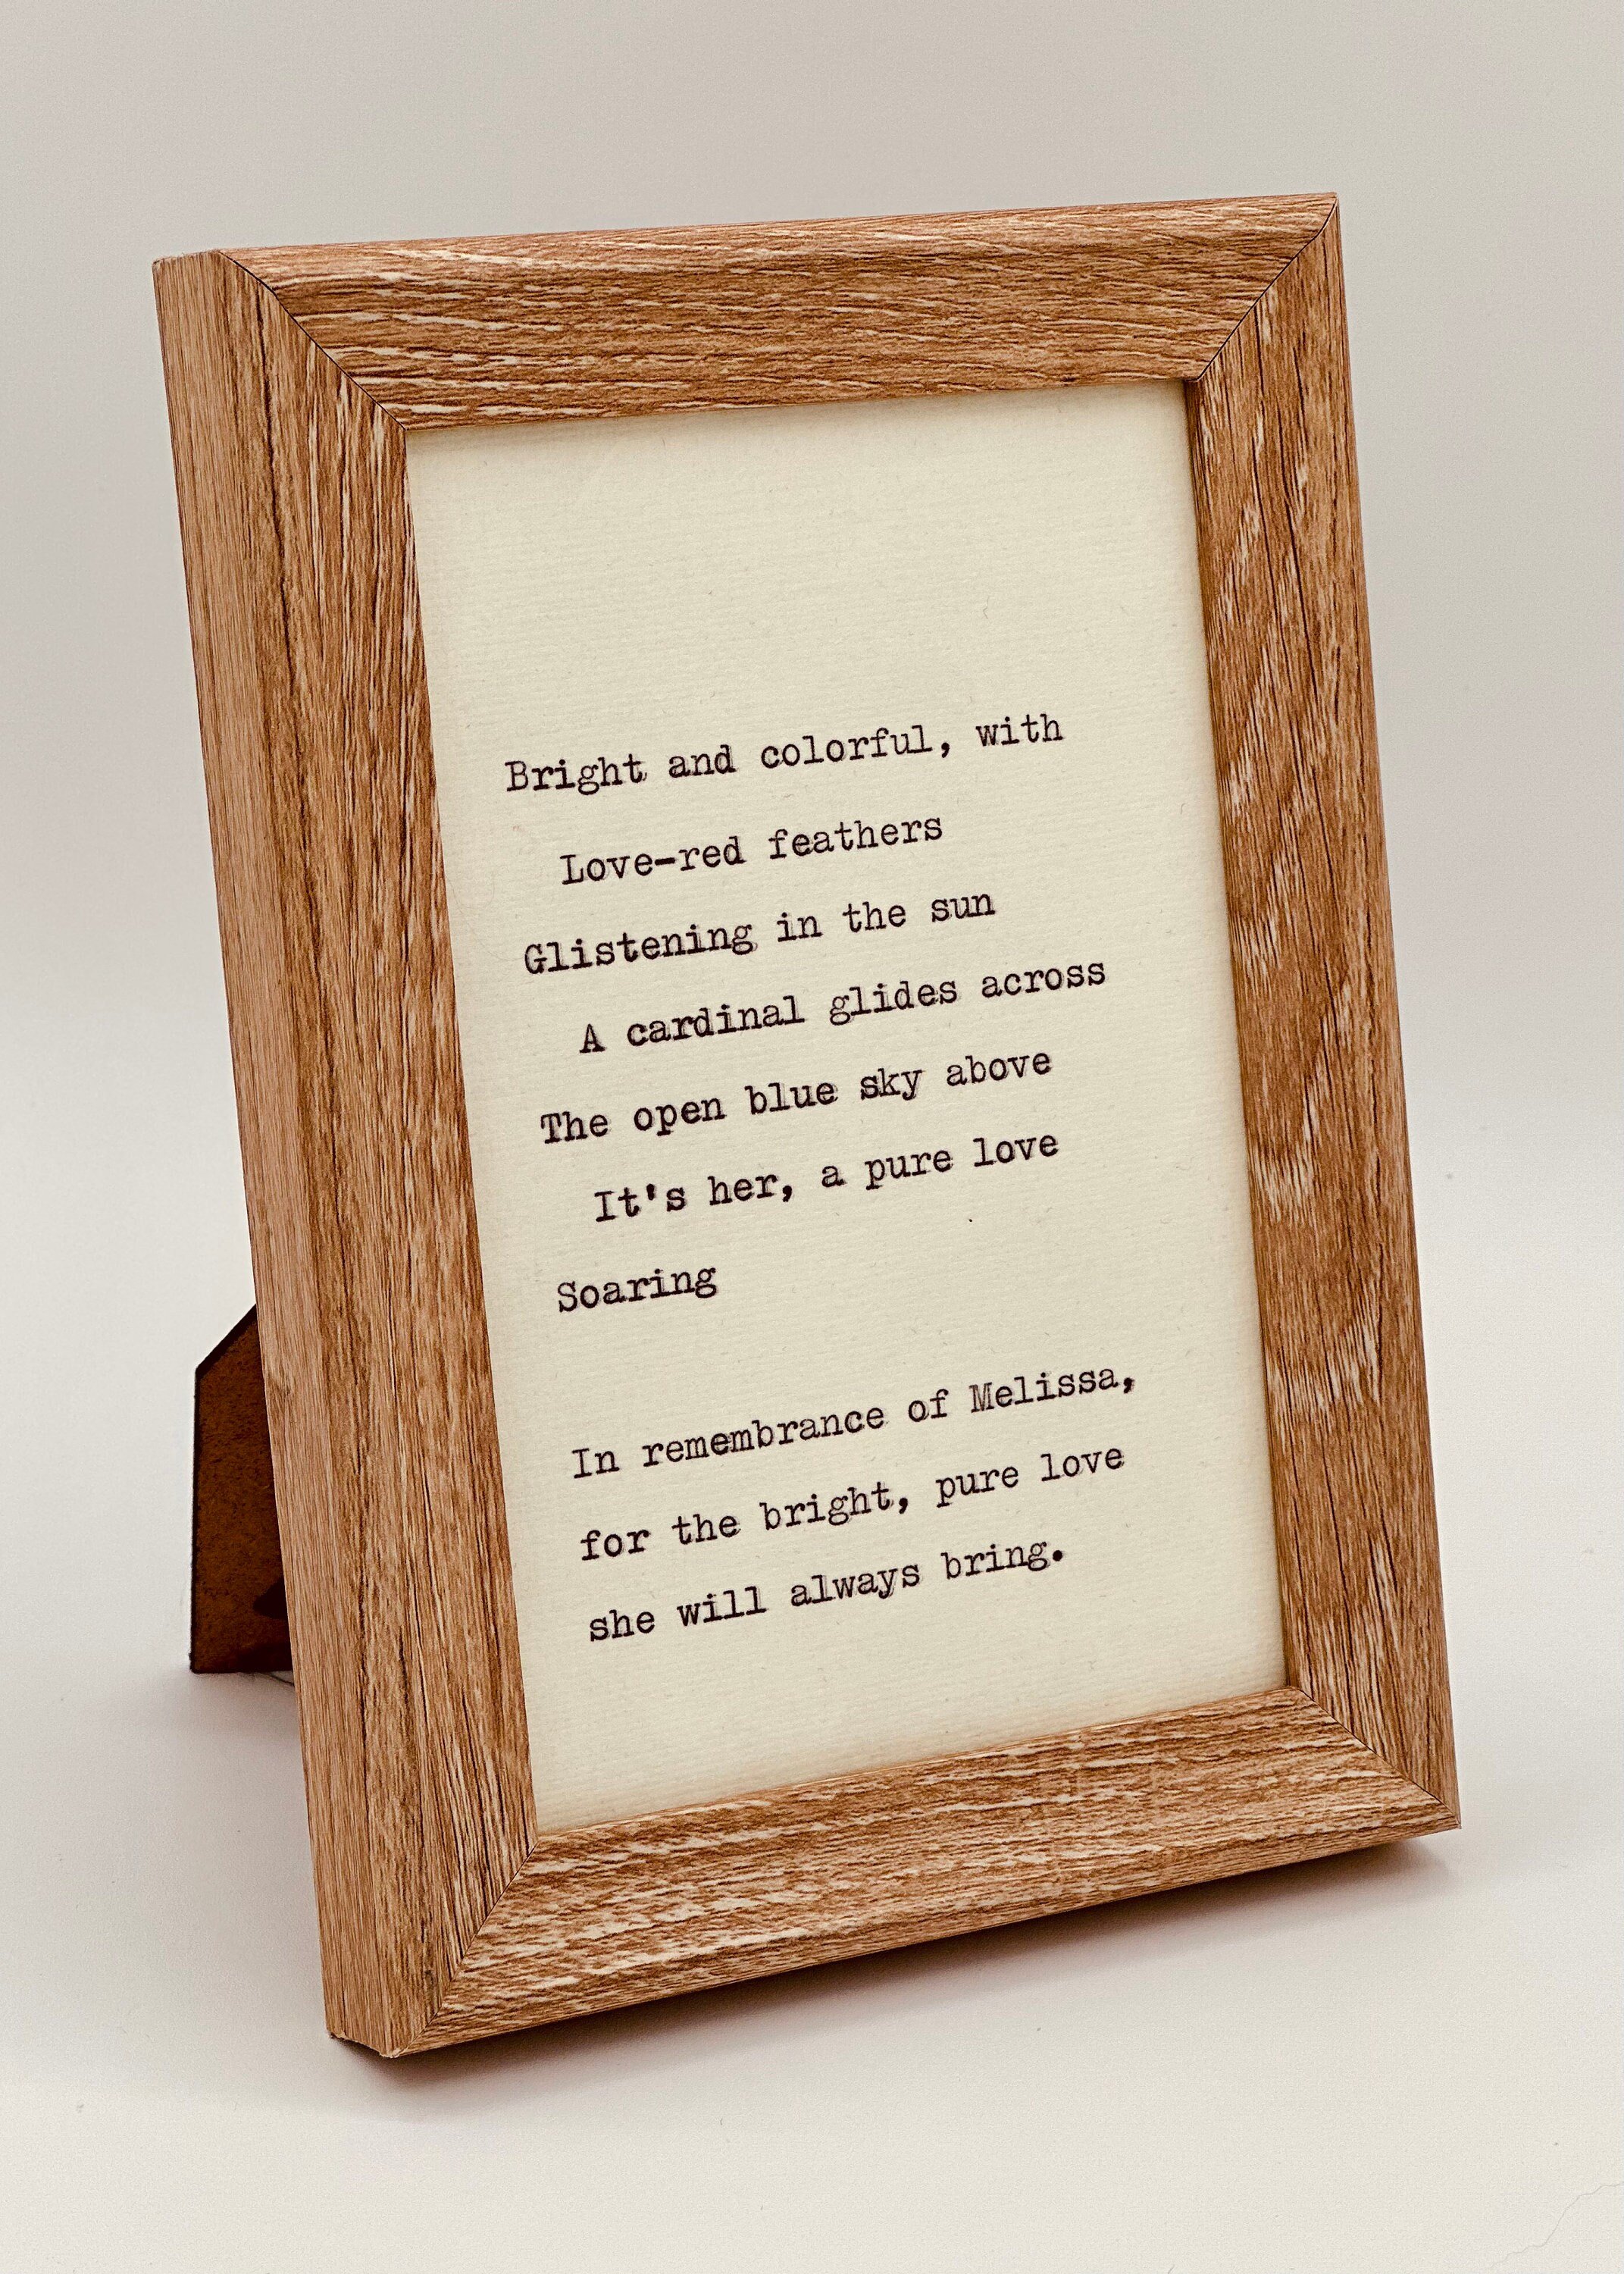 Bright and colorful, with
Love-red feathers
Glistening in the sun
A cardinal glides across
The open blue sky above
It's her, a pure love
Soaring
In remembrance of Melissa,
for the bright, pure love
she will always bring.